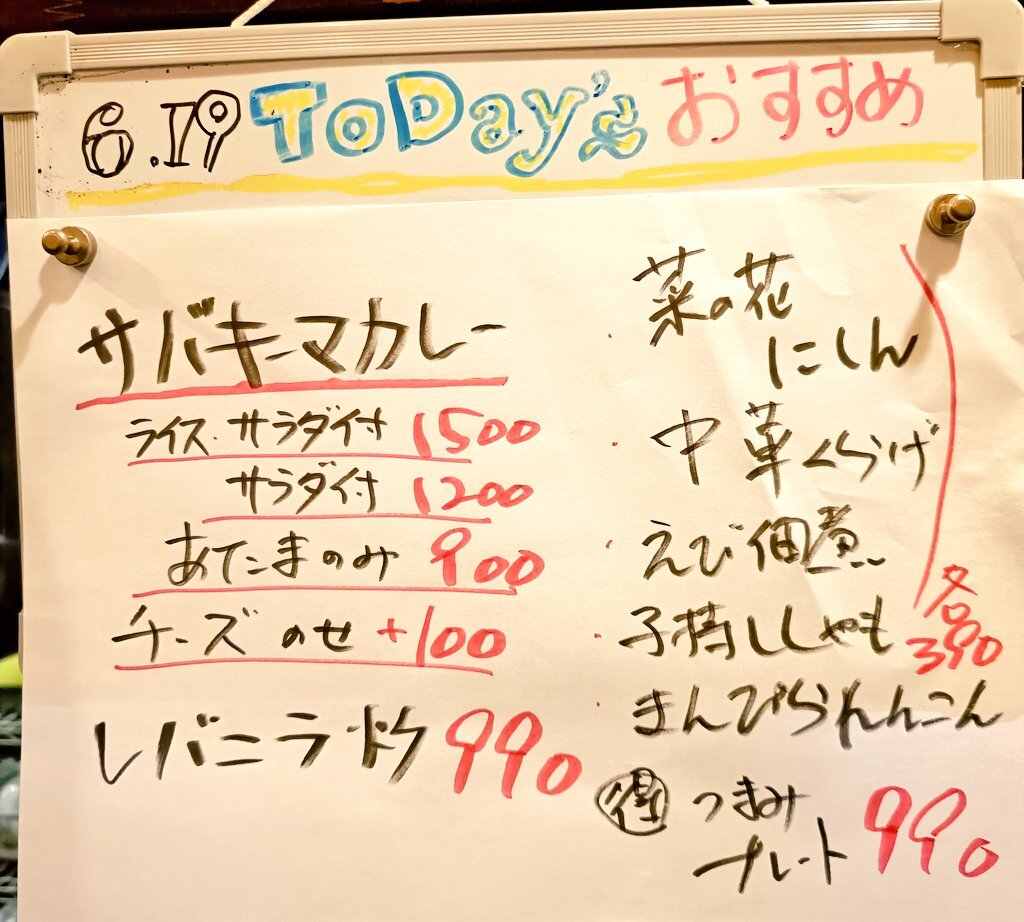 6.19 ToDay's おすすめ
サバキーマカレー
ライス・サラダ付 1500
サラダ付 1200
あたまのみ 900
チーズのせ +100
レバニラ炒 990
菜の花
にしん
・中華くらげ
・えび佃煮
・子持ししゃも
きんぴられんこん
各
390
得 つまみ
プレート 990